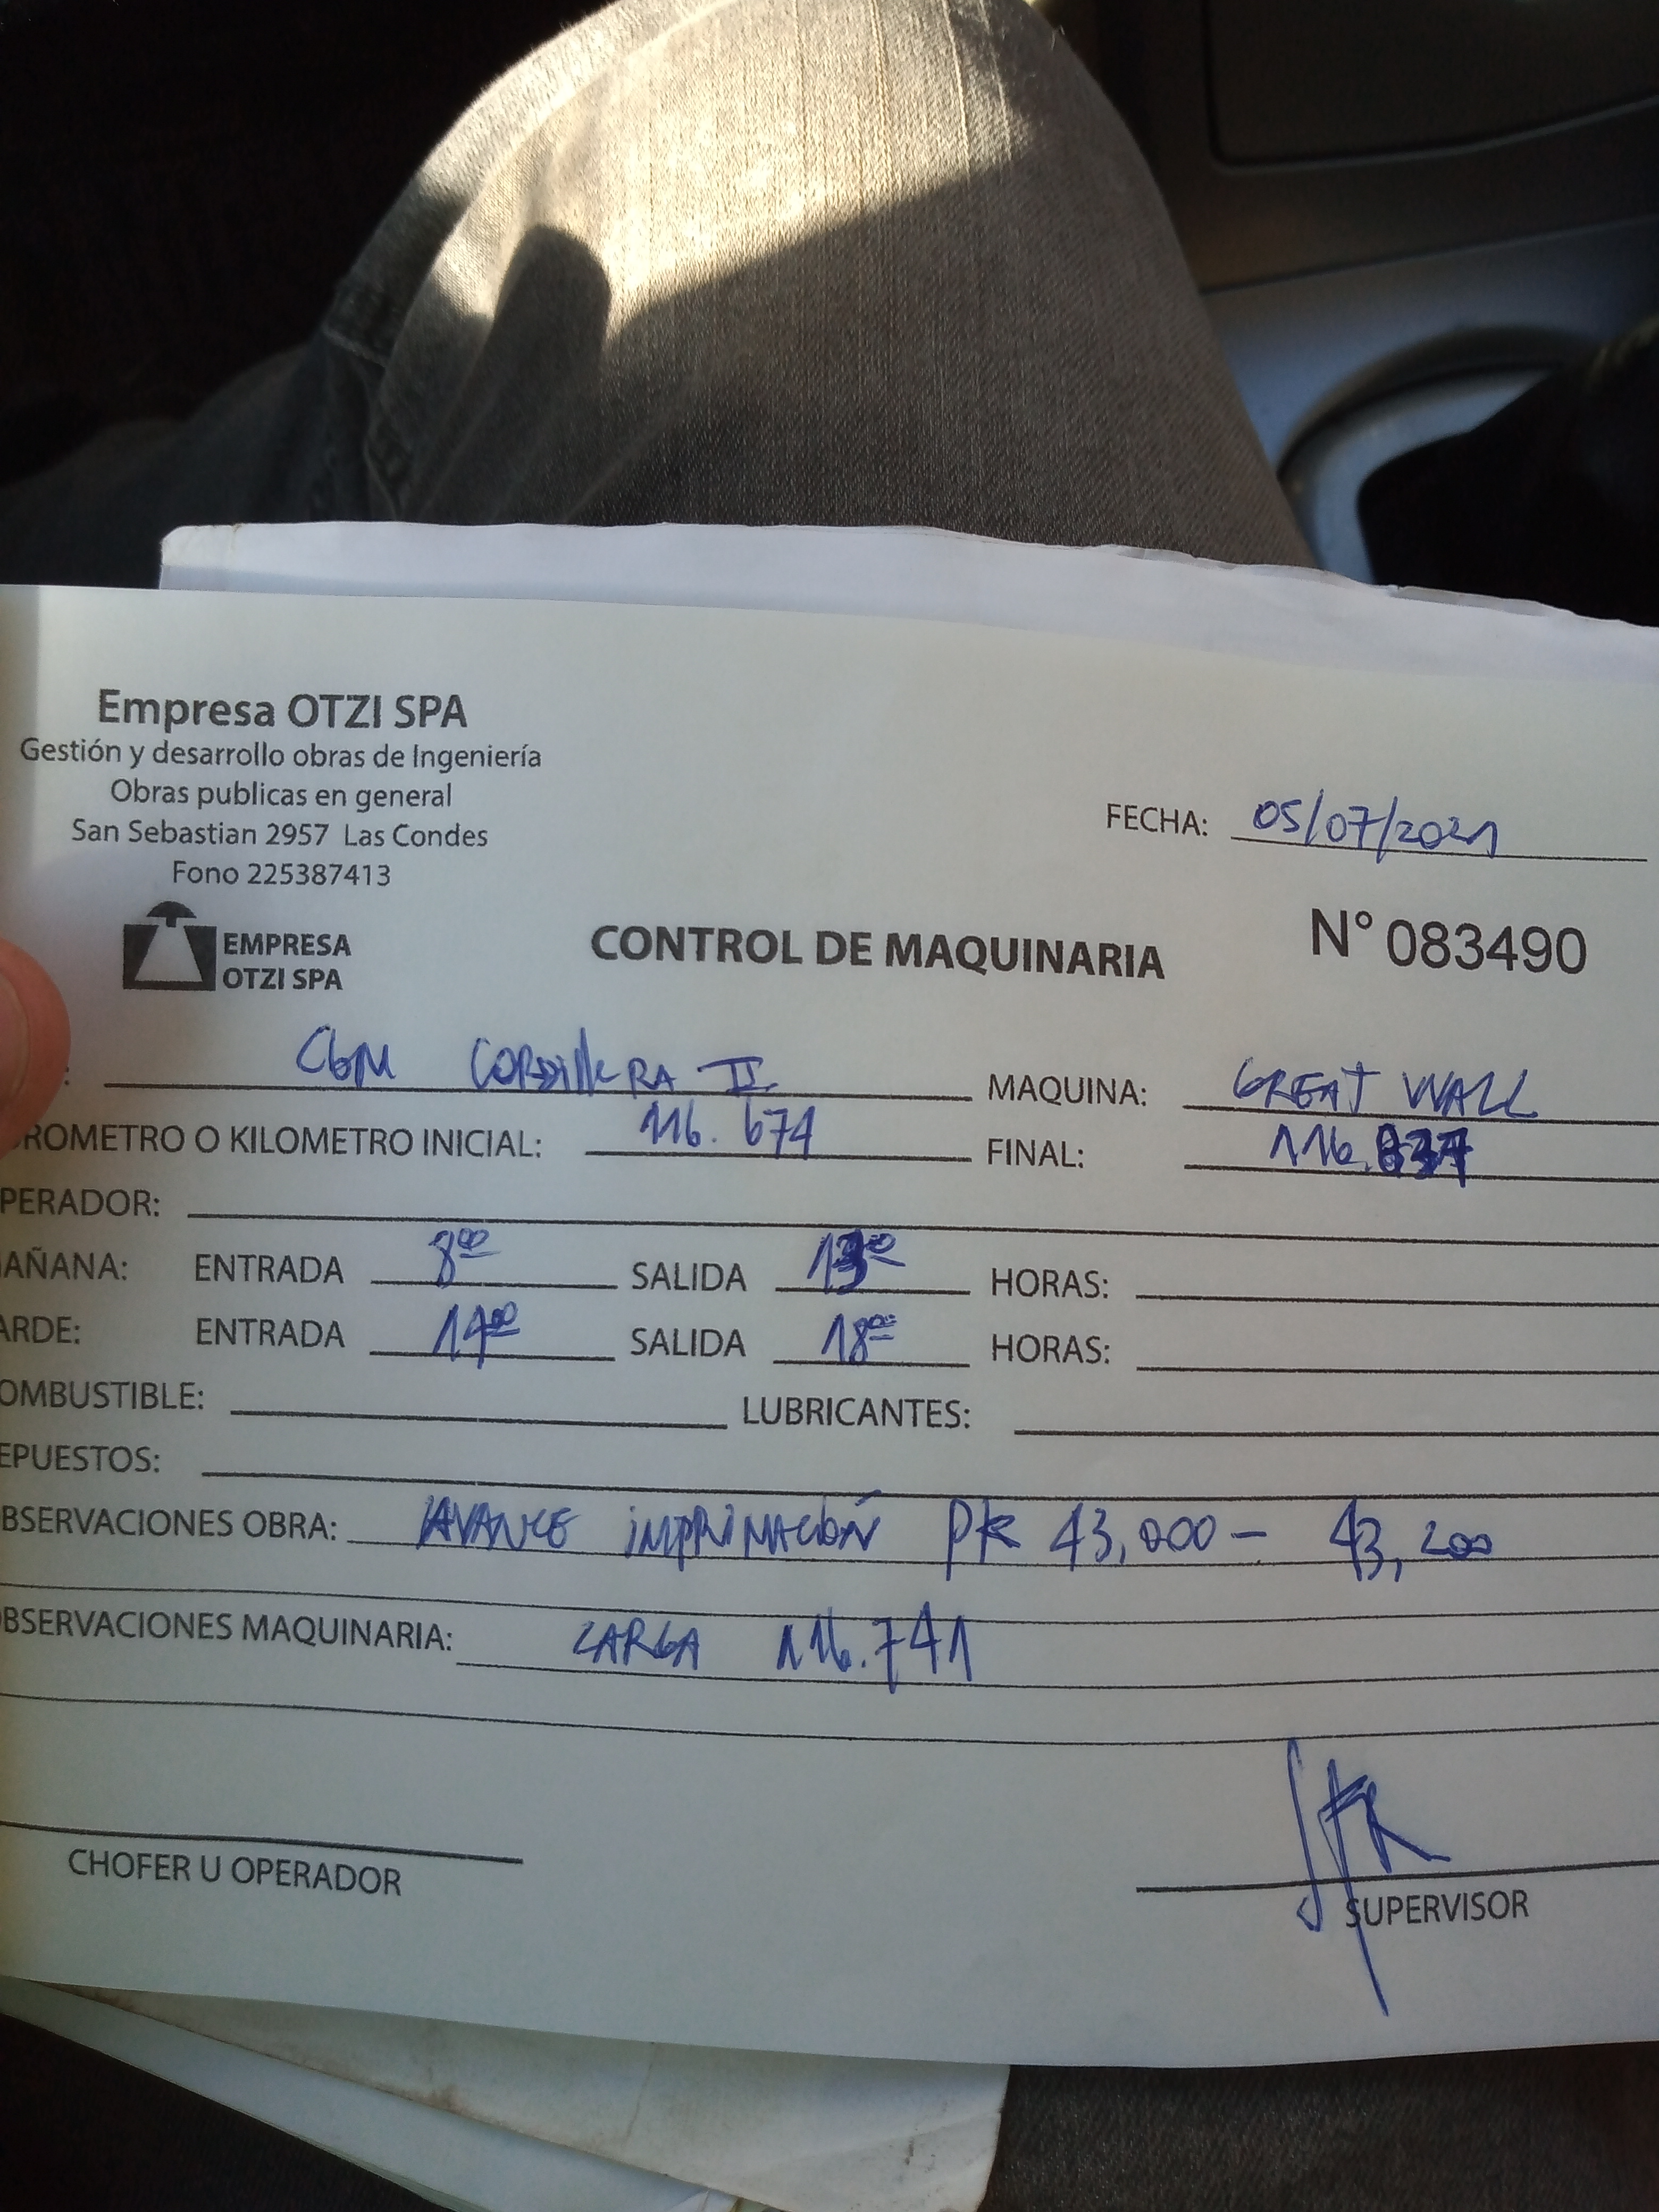 Empresa OTZI SPA
Gestión y desarrollo obras de Ingeniería
Obras publicas en general
San Sebastian 2957 Las Condes
Fono 225387413
FECHA: 05/07/2021
EMPRESA
OTZI SPA
CONTROL DE MAQUINARIA
N° 083490
: CGM CORDILLERA II MAQUINA: GREAT WALL
ROMETRO O KILOMETRO INICIAL: 116.671 FINAL:
PERADOR:
AÑANA: ENTRADA 8ºº SALIDA 13ºº HORAS:
ARDE: ENTRADA 14ºº SALIDA 18ºº HORAS:
OMBUSTIBLE: LUBRICANTES:
EPUESTOS:
BSERVACIONES OBRA: AVANCE IMPRIMACIÓN PK 43,000 - 43,200
BSERVACIONES MAQUINARIA: CARGA 116.741
CHOFER U OPERADOR
SUPERVISOR